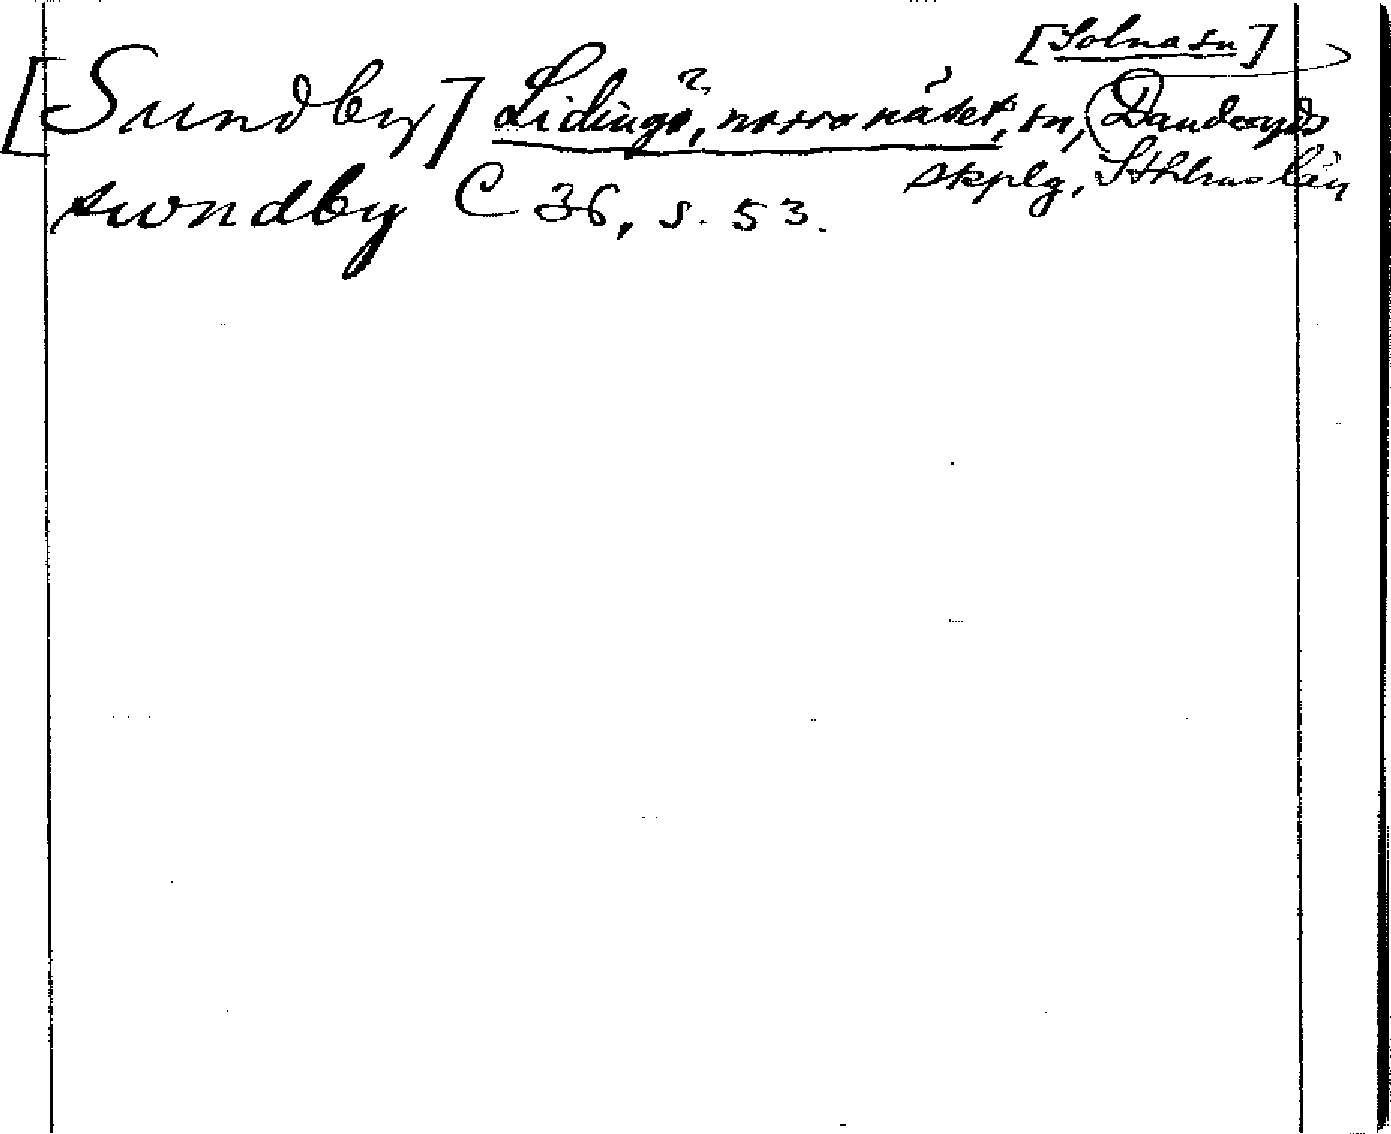 [Solna sn]
[Sundby] Lidingö, norra nästet, sn, Danderyds
skplg, Sthlms län
sundby C 36, s. 53.